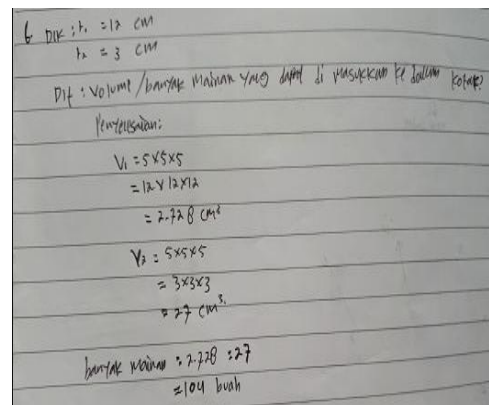 6 Dik : r₁ = 12 cm
r₂ = 3 cm
Dit : Volume / banyak mainan yang dapat di masukkan ke dalam kotak?
Penyelesaian:
V₁ = 5×5×5
= 12×12×12
= 2.728 cm³
V₂ = 5×5×5
= 3×3×3
= 27 cm³.
banyak mainan = 2.728 : 27
= 104 buah